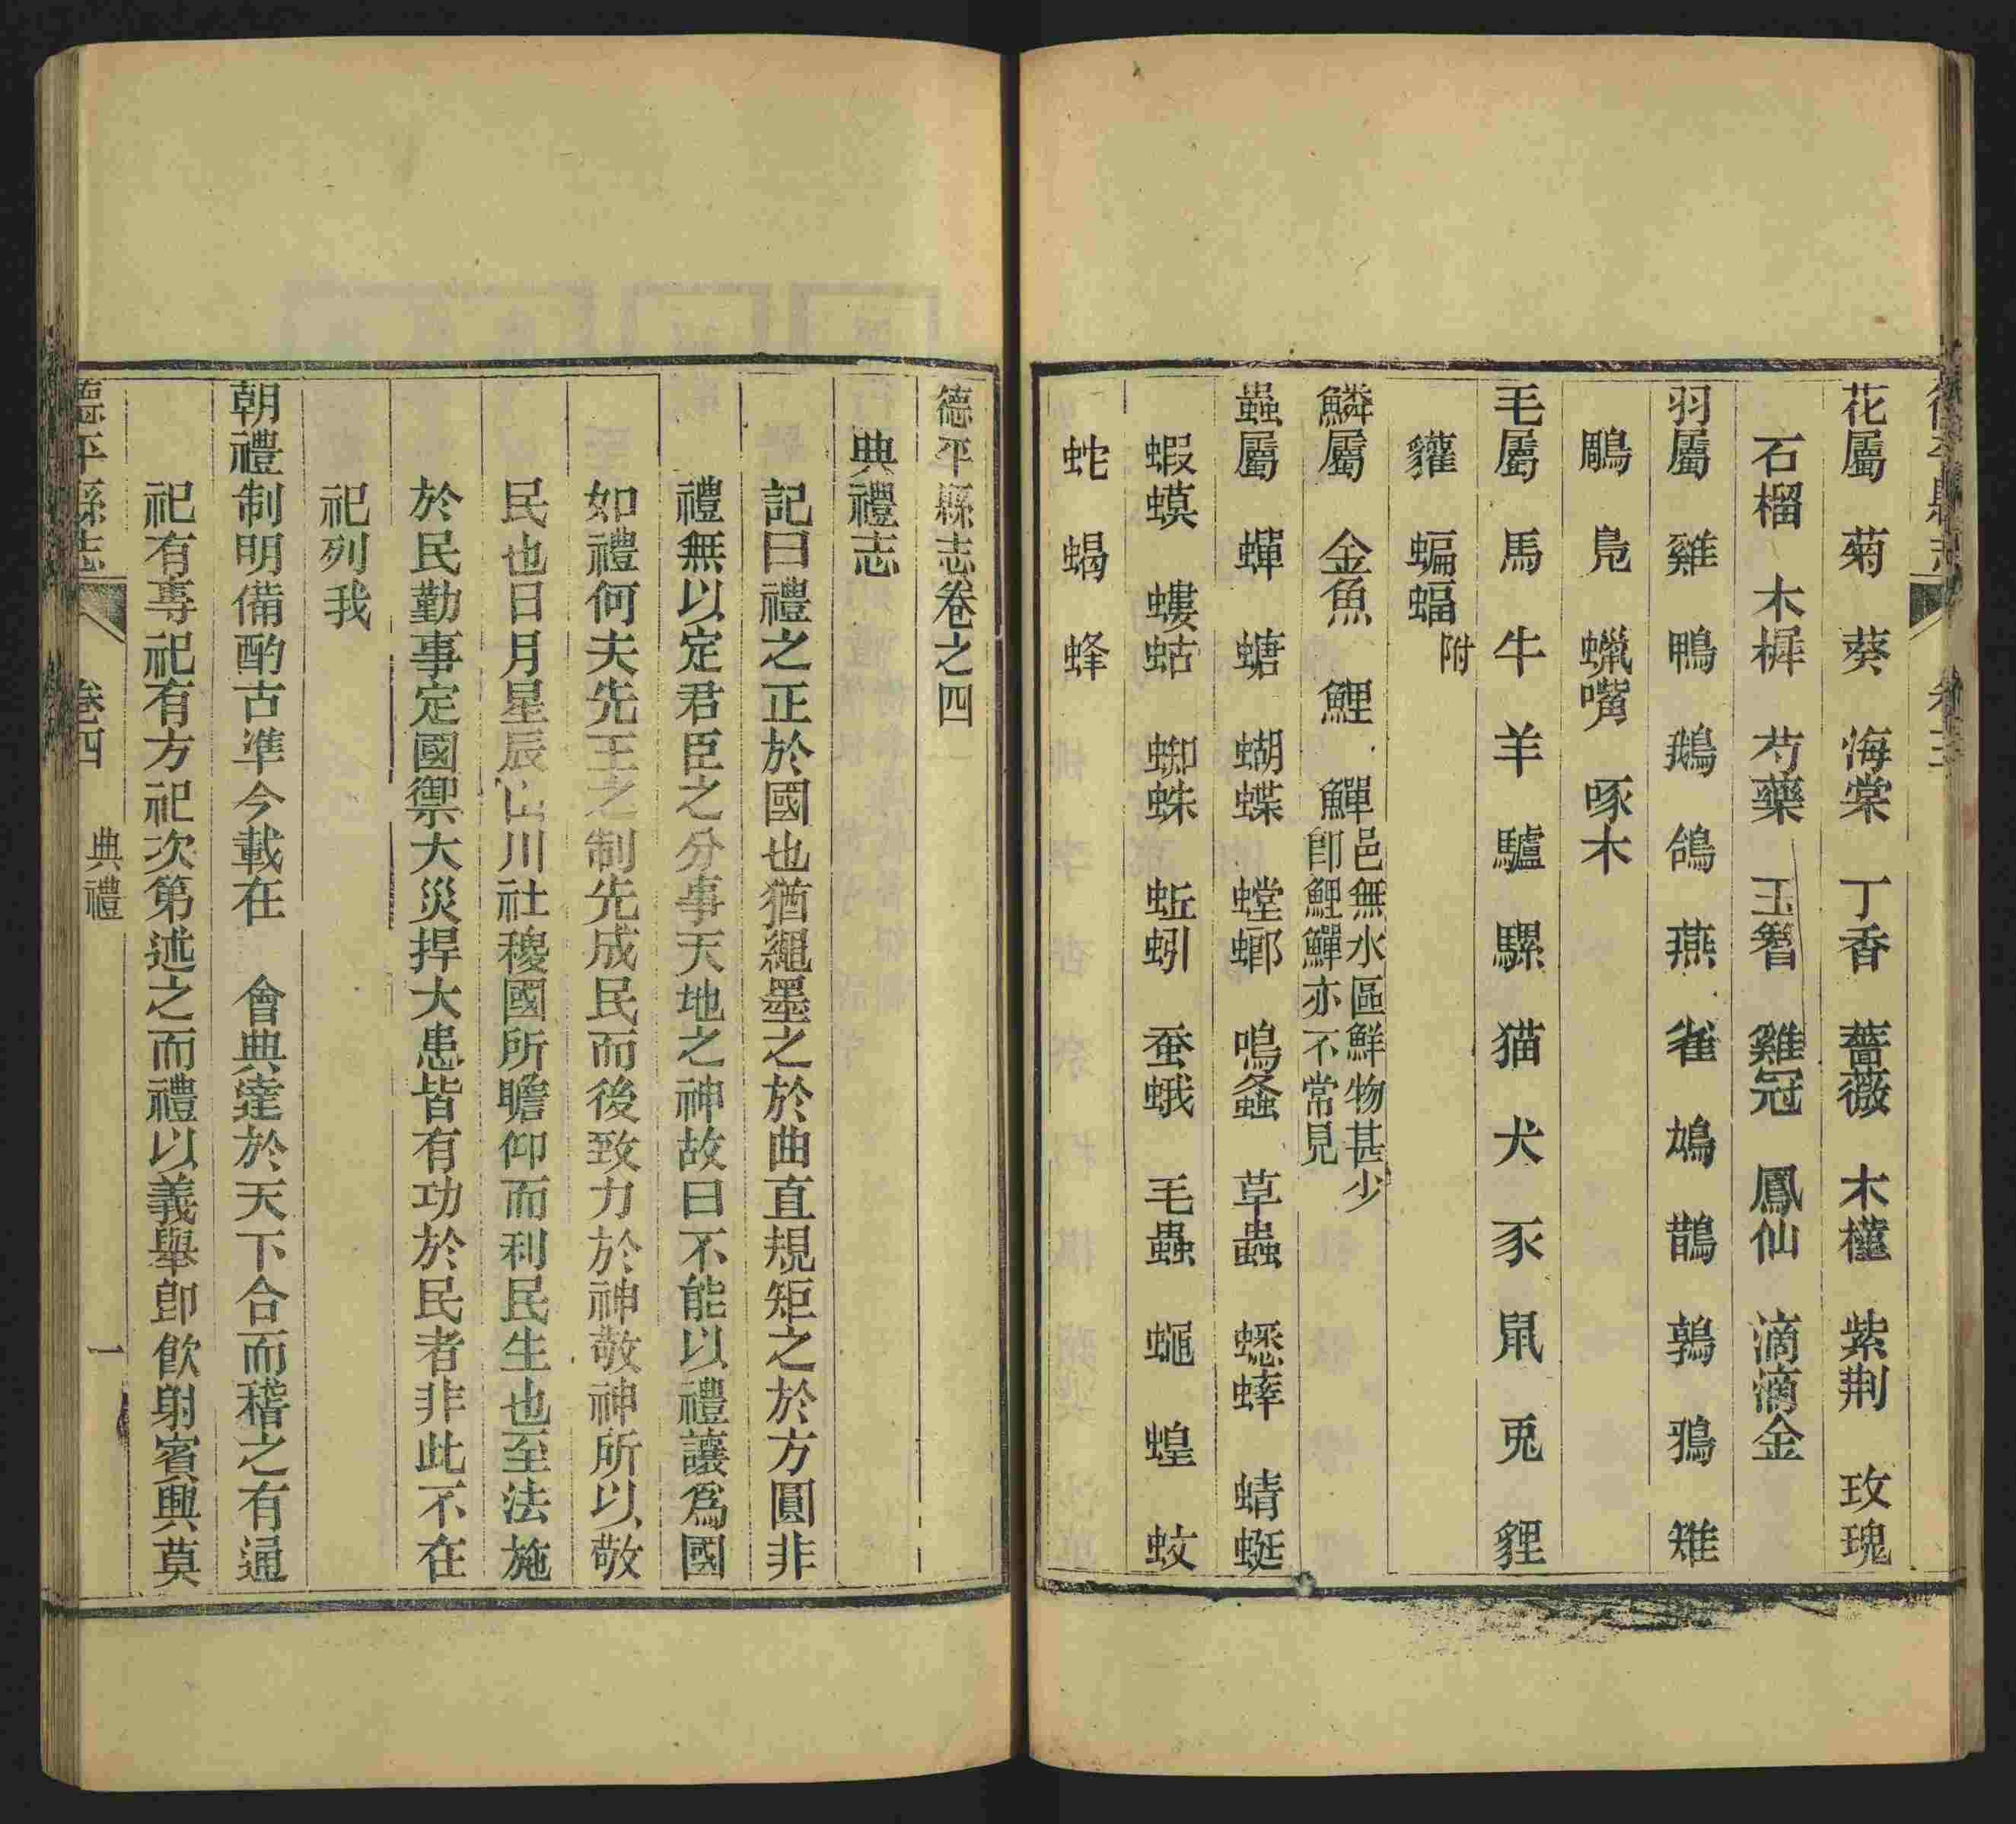 花屬　菊　葵　海棠　丁香　薔薇　木槿　紫荆　玫瑰
石榴　木樨　芍藥　玉簪　雞冠　鳳仙　滴滴金
羽屬　雞　鴨　鵝　鴿　燕　雀　鳩　鵲　鶉　鴉　雉
鵰　鳧　蠟嘴　啄木
毛屬　馬　牛　羊　驢　騾　猫　犬　豕　鼠　兎　貍
貛　蝙蝠附
鱗屬　金魚　鯉　鱓邑無水區鮮物甚少
卽鯉鱓亦不常見
蟲屬　蟬　螗　蝴蝶　螳螂　鳴螽　草蟲　蟋蟀　蜻蜓
蝦蟆　螻蛄　蜘蛛　蚯蚓　蚕蛾　毛蟲　蠅　蝗　蚊
蛇　蝎　蜂
德平縣志卷之四
典禮志
記曰禮之正於國也猶繩墨之於曲直規矩之於方圓非
禮無以定君臣之分事天地之神故曰不能以禮讓爲國
如禮何夫先王之制先成民而後致力於神敬神所以敬
民也日月星辰山川社稷國所瞻仰而利民生也至法施
於民勤事定國禦大災捍大患皆有功於民者非此不在
祀列我
朝禮制明備酌古準今載在　會典達於天下合而稽之有通
祀有專祀有方祀次第述之而禮以義舉卽飮射賓興莫
德平縣志　卷四　典禮　一